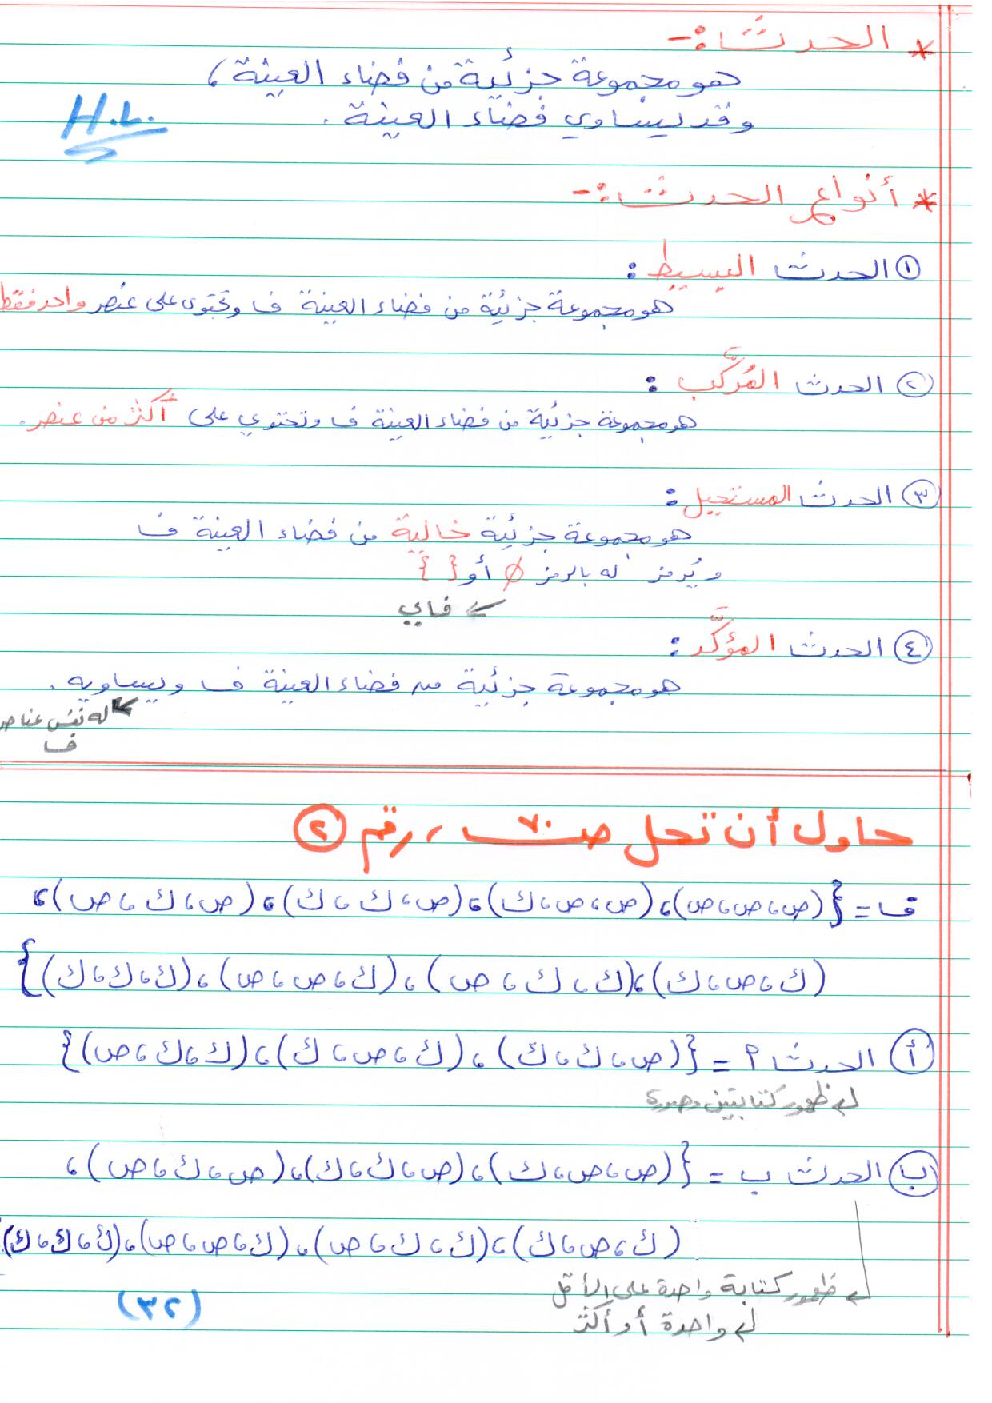 * الحدث :-
هو مجموعة جزئية من فضاء العينة ،
وقد يساوي فضاء العينة .
H.L.
* أنواع الحدث :-
١ الحدث البسيط :
هو مجموعة جزئية من فضاء العينة ف وتحتوى على عنصر واحد فقط
٢ الحدث المُركَّب :
هو مجموعة جزئية من فضاء العينة ف وتحتوي على أكثر من عنصر .
٣ الحدث المستحيل :
هو مجموعة جزئية خالية من فضاء العينة ف
ويُرمز له بالرمز ∅ أو { }
فاي
٤ الحدث المؤكَّد :
هو مجموعة جزئية من فضاء العينة ف ويساويه .
له نفس عناصر
ف
حاول أن تحل ص٧٠ ، رقم ٢
ف = {(ص،ص،ص)،(ص،ص،ك)،(ص،ك،ك)،(ص،ك،ص)،
(ك،ص،ك)،(ك،ك،ص)،(ك،ص،ص)،(ك،ك،ك)}
أ الحدث ٢ = {(ص،ك،ك)،(ك،ص،ك)،(ك،ك،ص)}
ظهور كتابتين وصورة
ب الحدث ب = {(ص،ص،ك)،(ص،ك،ك)،(ص،ك،ص)،
(ك،ص،ك)،(ك،ك،ص)،(ك،ص،ص)،(ك،ك،ك)
ظهور كتابة واحدة على الأقل
واحدة أو أكثر
(٣٢)